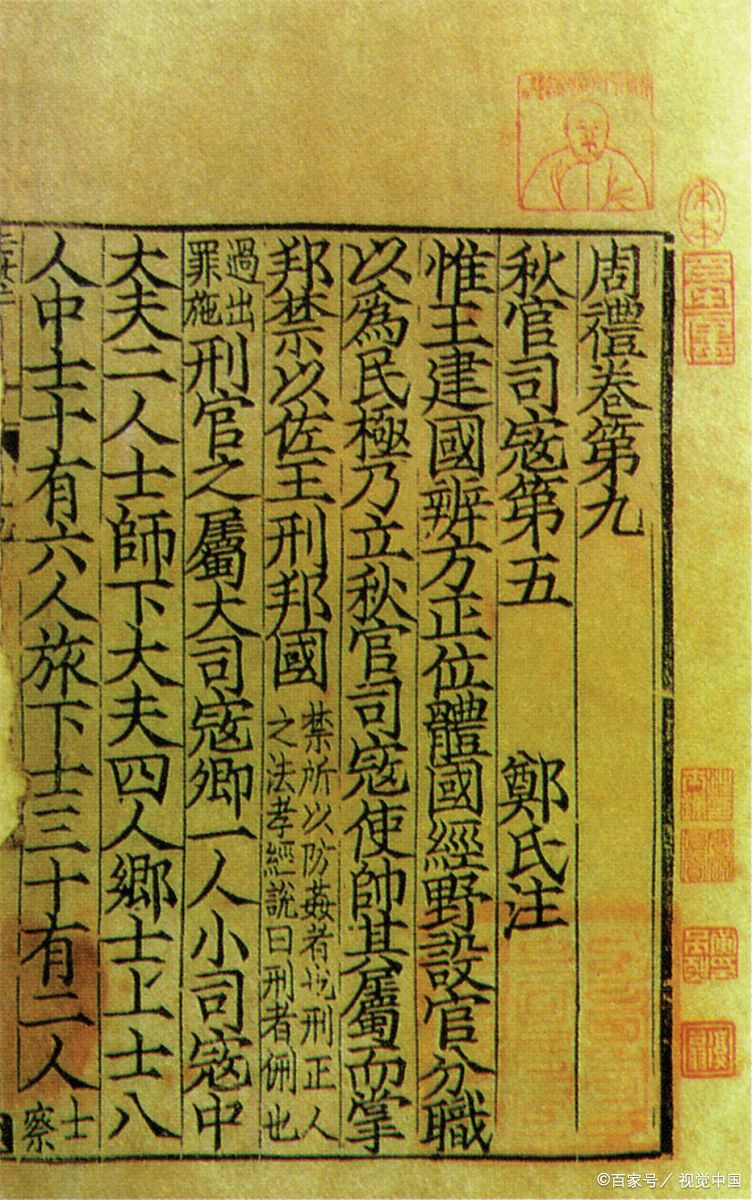 周禮卷第九
秋官司宼第五 鄭氏注
惟王建國辨方正位體國經野設官分職
以爲民極乃立秋官司宼使帥其屬而掌
邦禁以佐王刑邦國 禁所以防姦者也刑正人
之法孝經說曰刑者侀也
過出
罪施
刑官之屬大司宼卿一人小司宼中
大夫二人士師下大夫四人鄉士上士八
人中士十有六人旅下士三十有二人 士
察
©百家号／视觉中国